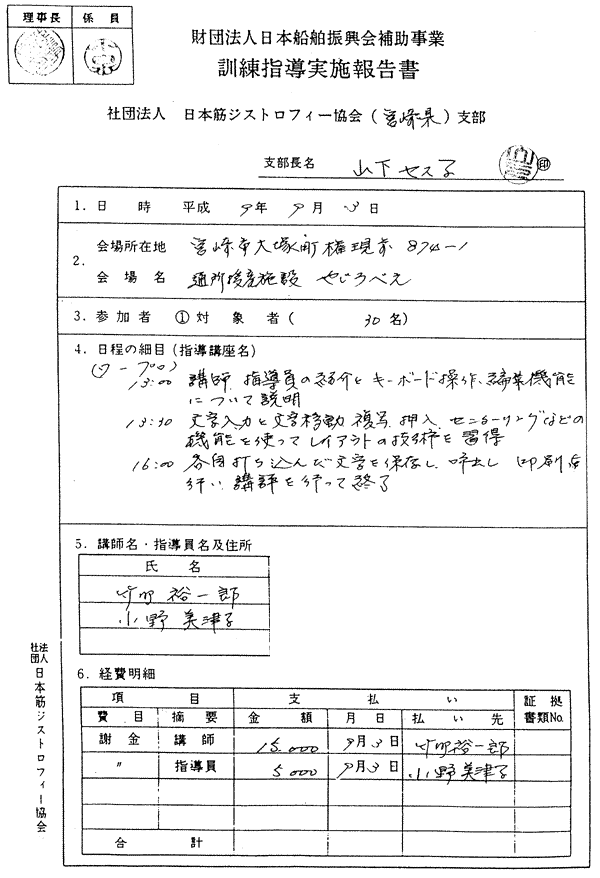 理事長 係員
財団法人日本船舶振興会補助事業
訓練指導実施報告書
社団法人 日本筋ジストロフィー協会(宮崎県)支部
支部長名 山下セス子 印
1. 日 時 平成 9年 9月 3日
2. 会場所在地 宮崎市大塚町権現前 874-1
会場名 通所授産施設 やじろべえ
3. 参加者 ①対象者( 30名)
4. 日程の細目(指導講座名)
(ワープロ)
13:00 講師 指導員の紹介とキーボード操作、編集機能
について説明
13:30 文字入力と文字移動 複写 押入 センターリングなどの
機能を使ってレイアウトの技術を習得
16:00 各自打ち込んだ文字を保存し 呼出し 印刷を
行い 講評を行って終了
5. 講師名・指導員名及住所
氏 名
裕一郎
小野 美津子
6. 経費明細
項 目 支 払 い 証拠書類No.
費目 摘要 金額 月日 払い先
謝金 講師 15,000 9月3日 裕一郎
〃 指導員 5,000 9月3日 小野美津子
合 計
社団法人 日本筋ジストロフィー協会